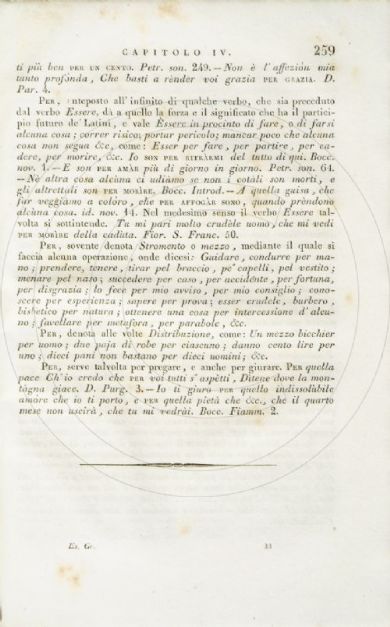 CAPITOLO IV. 259
ti più ben PER UN CENTO. Petr. son. 249. — Non è l'affezión mia
tanto profónda, Che basti a rènder voi grazia PER GRAZIA. D.
Par. 4.
PER, anteposto all'infinito di qualche verbo, che sia preceduto
dal verbo Essere, dà a quello la forza e il significato che ha il partici-
pio futuro de' Latini, e vale Essere in procinto di fare, o di farsi
alcuna cosa; correr risico; portar pericolo; mancar poco che alcuna
cosa non segua &c., come: Esser per fare, per partire, per ca-
dere, per morire, &c. Io SON PER RITRÀRMI del tutto di qui. Bocc.
nov. 1. — E SON PER AMÀR più di giorno in giorno. Petr. son. 61.
— Nè altra cosa alcùna ci udiàmo se non i cotáli son morti, e
gli altrettali SON PER MORÌRE. Bocc. Introd. — A quella guisa, che
far veggiamo a coloro, che PER AFFOGÀR SONO, quando prèndono
alcùna cosa. id. nov. 14. Nel medesimo senso il verbo Essere tal-
volta si sottintende. Tu mi pari molto crudèle uomo, che mi vedi
PER MORÌRE della cadùta. Fior. S. Franc. 50.
PER, sovente denota Stromento o mezzo, mediante il quale si
faccia alcuna operazione, onde dicesi: Guidare, condurre per ma-
no; prendere, tenere, tirar pel braccio, pe' capelli, pel vestito;
menare pel naso; succedere per caso, per accidente, per fortuna,
per disgrazia; lo fece per mio avviso, per mio consiglio; cono-
scere per esperienza; sapere per prova; esser crudele, burbero,
bisbetico per natura; ottenere una cosa per intercessione d'alcu-
no; favellare per metafora, per parabole, &c.
PER, denota alle volte Distribuzione, come: Un mezzo bicchier
per uomo; due paja di robe per ciascuno; danno cento lire per
uno; dieci pani non bastano per dieci uomini; &c.
PER, serve talvolta per pregare, e anche per giurare. PER quella
pace Ch'io credo che PER voi tutti s'aspètti, Ditene dove la mon-
tàgna giace. D. Purg. 3. — Io ti giuro PER quello indissolùbile
amore che io ti porto, e PER quella pietà che &c., che il quarto
mese non uscirà, che tu mi vedrài. Bocc. Fiamm. 2.
Es. Gr. 33